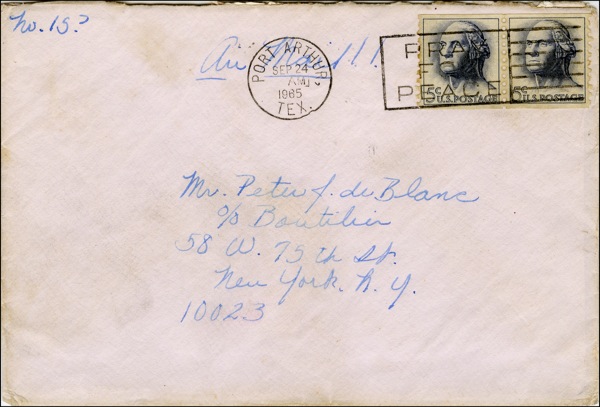 No. 15?
Air Mail!!
PORT ARTHUR,
SEP 24
AM
1965
TEX.
PRAY
FOR
PEACE
5c U.S. POSTAGE
5c U.S. POSTAGE
Mr. Peter J. de Blanc
c/o Boutilier
58 W. 75th St.
New York, N.Y.
10023